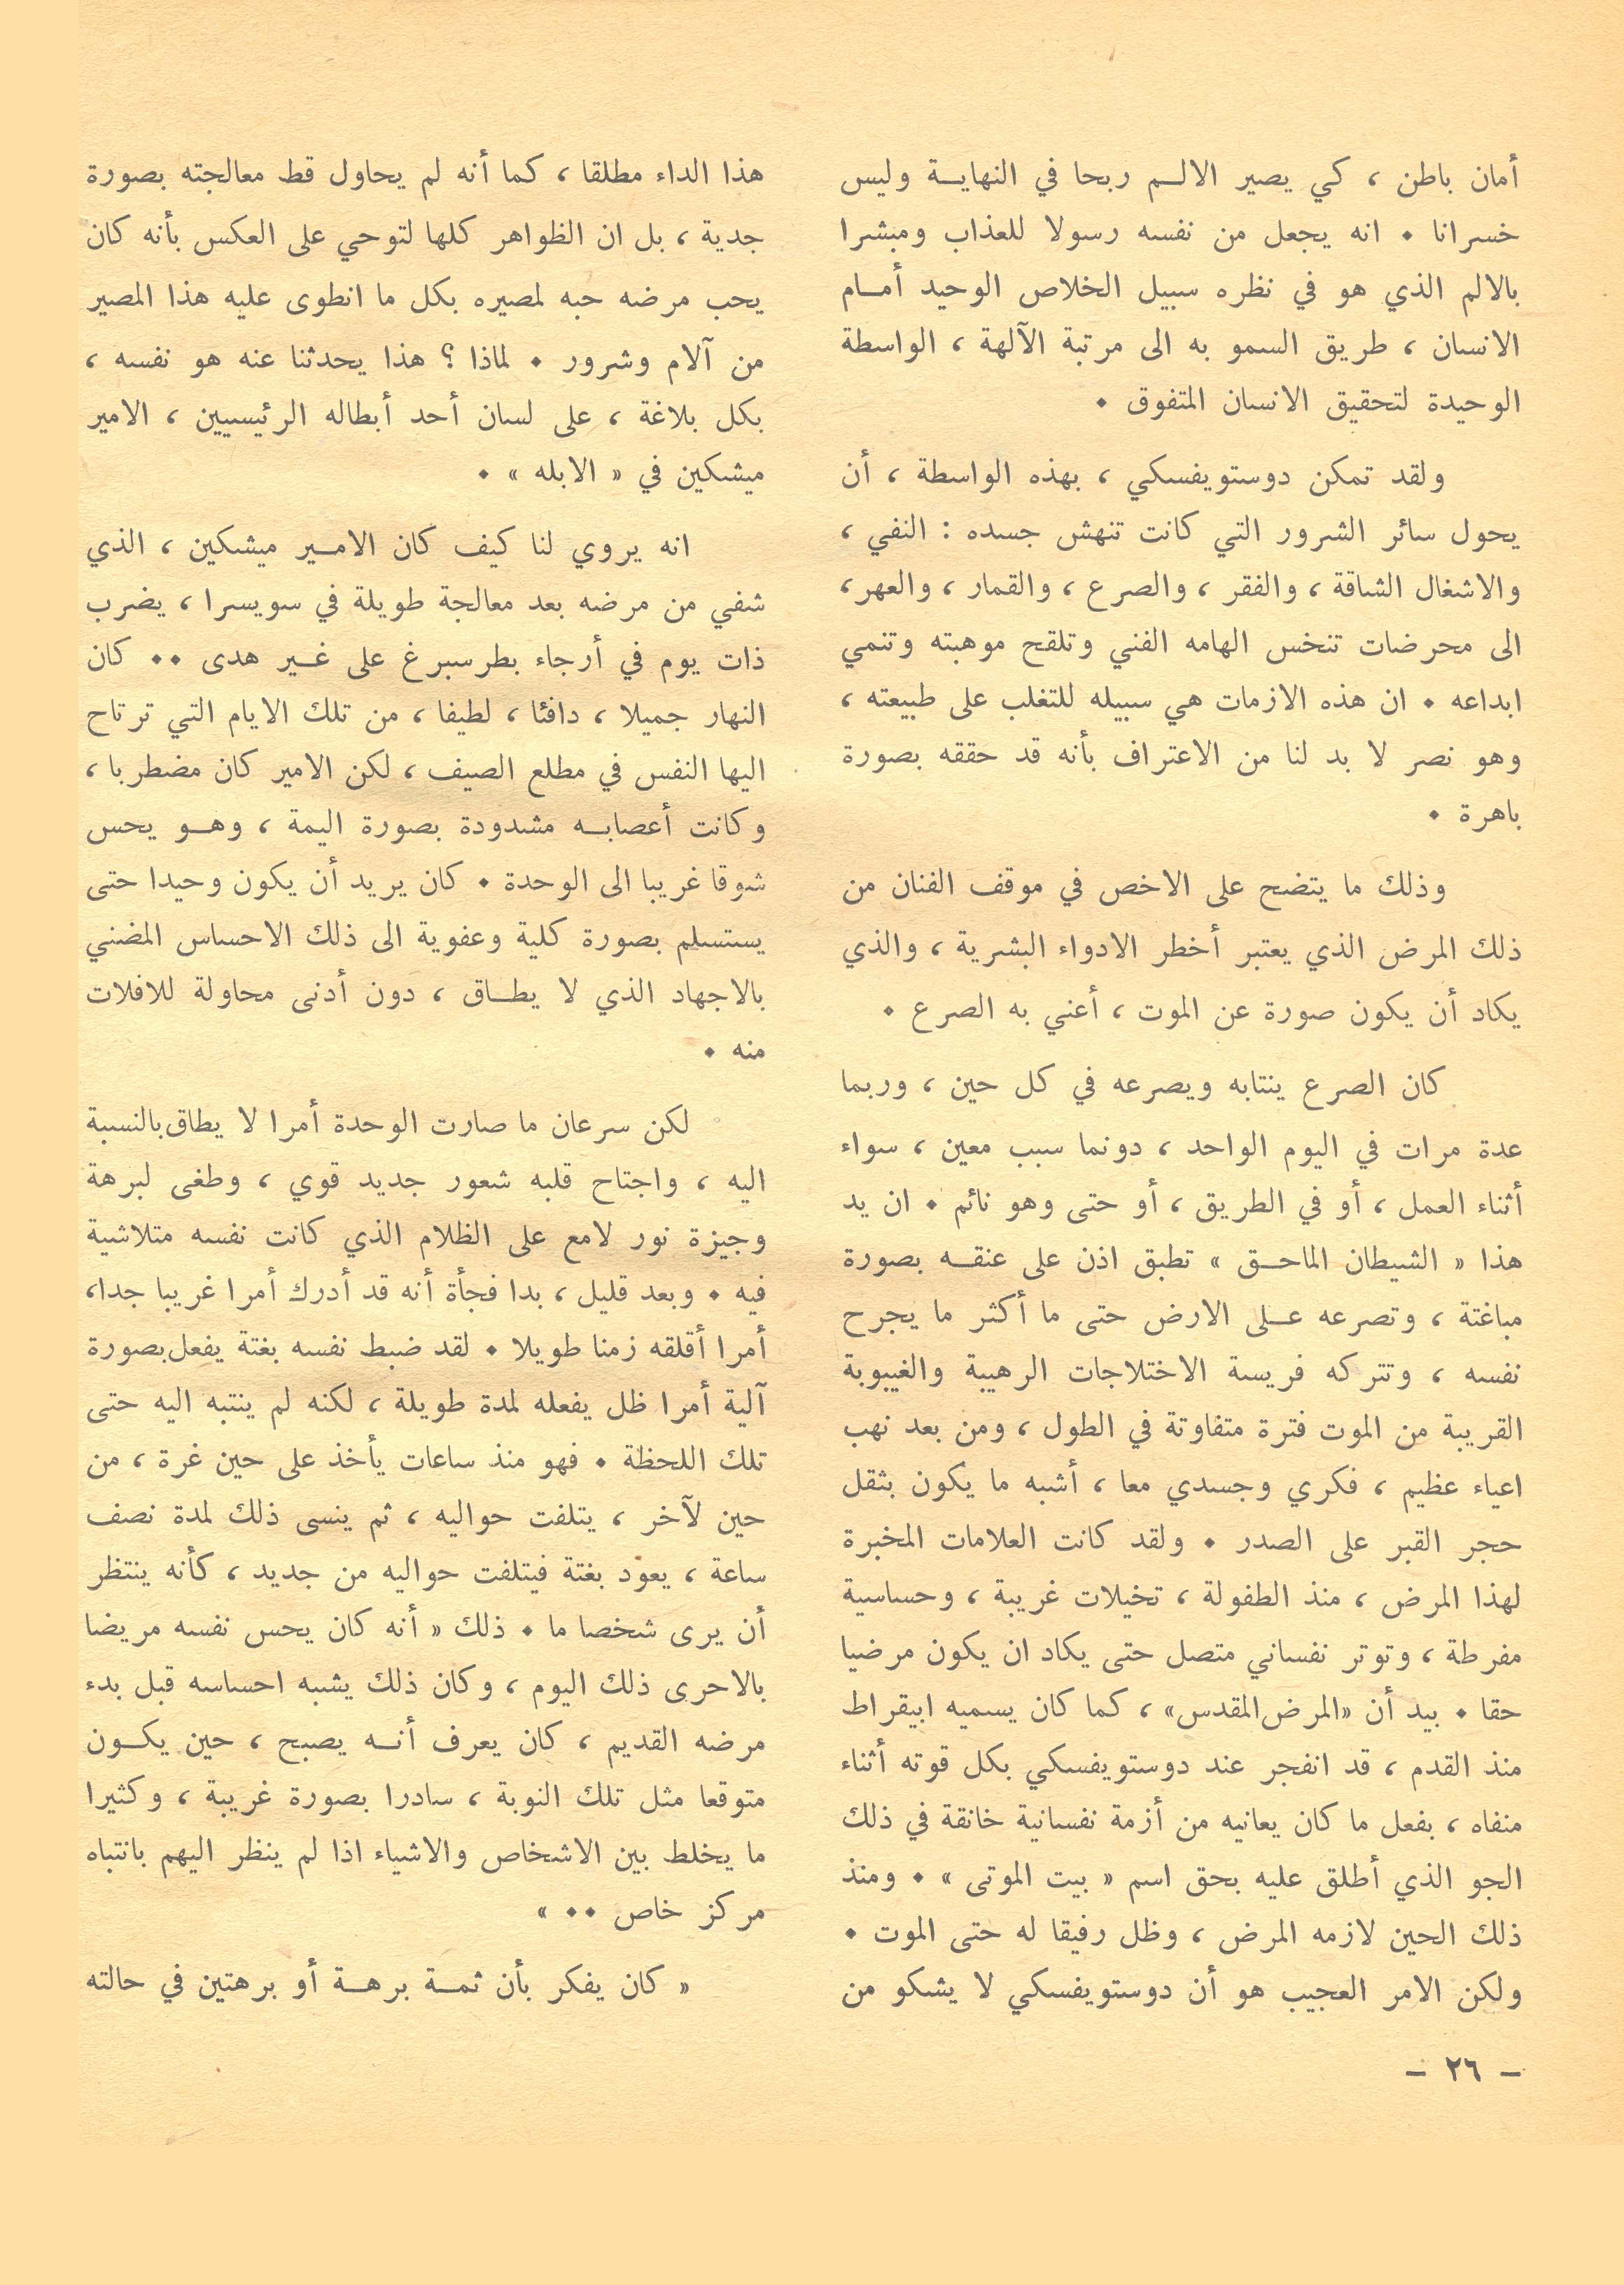 أمان باطن ، كي يصير الالـم ربحا في النهايـة وليس
خسرانا • انه يجعل من نفسه رسولا للعذاب ومبشرا
بالالم الذي هو في نظره سبيل الخلاص الوحيد أمـام
الانسان ، طريق السمو به الى مرتبة الآلهة ، الواسطة
الوحيدة لتحقيق الانسان المتفوق •
ولقد تمكن دوستويفسكي ، بهذه الواسطة ، أن
يحول سائر الشرور التي كانت تنهش جسده : النفي ،
والاشغال الشاقة ، والفقر ، والصرع ، والقمار ، والعهر ،
الى محرضات تنخس الهامه الفني وتلقح موهبته وتنمي
ابداعه • ان هذه الازمات هي سبيله للتغلب على طبيعته ،
وهو نصر لا بد لنا من الاعتراف بأنه قد حققه بصورة
باهرة •
وذلك ما يتضح على الاخص في موقف الفنان من
ذلك المرض الذي يعتبر أخطر الادواء البشرية ، والذي
يكاد أن يكون صورة عن الموت ، أعني به الصرع •
كان الصرع ينتابه ويصرعه في كل حين ، وربما
عدة مرات في اليوم الواحد ، دونما سبب معين ، سواء
أثناء العمل ، أو في الطريق ، أو حتى وهو نائم • ان يد
هذا « الشيطان الماحـق » تطبق اذن على عنقـه بصورة
مباغتة ، وتصرعه عـلى الارض حتى ما أكثر ما يجرح
نفسه ، وتتركه فريسة الاختلاجات الرهيبة والغيبوبة
القريبة من الموت فترة متفاوتة في الطول ، ومن بعد نهب
اعياء عظيم ، فكري وجسدي معا ، أشبه ما يكون بثقل
حجر القبر على الصدر • ولقد كانت العلامات المخبرة
لهذا المرض ، منذ الطفولة ، تخيلات غريبة ، وحساسية
مفرطة ، وتوتر نفساني متصل حتى يكاد ان يكون مرضيا
حقا • بيد أن «المرض المقدس» ، كما كان يسميه ابيقراط
منذ القدم ، قد انفجر عند دوستويفسكي بكل قوته أثناء
منفاه ، بفعل ما كان يعانيه من أزمة نفسانية خانقة في ذلك
الجو الذي أطلق عليه بحق اسم « بيت الموتى » • ومنذ
ذلك الحين لازمه المرض ، وظل رفيقا له حتى الموت •
ولكن الامر العجيب هو أن دوستويفسكي لا يشكو من
هذا الداء مطلقا ، كما أنه لم يحاول قط معالجته بصورة
جدية ، بل ان الظواهر كلها لتوحي على العكس بأنه كان
يحب مرضه حبه لمصيره بكل ما انطوى عليه هذا المصير
من آلام وشرور • لماذا ؟ هذا يحدثنا عنه هو نفسه ،
بكل بلاغة ، على لسان أحد أبطاله الرئيسيين ، الامير
ميشكين في « الابله » •
انه يروي لنا كيف كان الامـير ميشكين ، الذي
شفي من مرضه بعد معالجة طويلة في سويسرا ، يضرب
ذات يوم في أرجاء بطرسبرغ على غـير هدى •• كان
النهار جميلا ، دافئا ، لطيفا ، من تلك الايام التي ترتاح
اليها النفس في مطلع الصيف ، لكن الامير كان مضطربا ،
وكانت أعصابـه مشدودة بصورة اليمة ، وهـو يحس
شوقا غريبا الى الوحدة • كان يريد أن يكون وحيدا حتى
يستسلم بصورة كلية وعفوية الى ذلك الاحساس المضني
بالاجهاد الذي لا يطـاق ، دون أدنى محاولة للافلات
منه •
لكن سرعان ما صارت الوحدة أمرا لا يطاق بالنسبة
اليه ، واجتاح قلبه شعور جديد قوي ، وطغى لبرهة
وجيزة نور لامع على الظلام الذي كانت نفسه متلاشية
فيه • وبعد قليل ، بدا فجأة أنه قد أدرك أمرا غريبا جدا ،
أمرا أقلقه زمنا طويلا • لقد ضبط نفسه بغتة يفعل بصورة
آلية أمرا ظل يفعله لمدة طويلة ، لكنه لم ينتبه اليه حتى
تلك اللحظة • فهو منذ ساعات يأخذ على حين غرة ، من
حين لآخر ، يتلفت حواليه ، ثم ينسى ذلك لمدة نصف
ساعة ، يعود بغتة فيتلفت حواليه من جديد ، كأنه ينتظر
أن يرى شخصا ما • ذلك « أنه كان يحس نفسه مريضا
بالاحرى ذلك اليوم ، وكان ذلك يشبه احساسه قبل بدء
مرضه القديم ، كان يعرف أنـه يصبح ، حين يكـون
متوقعا مثل تلك النوبة ، سادرا بصورة غريبة ، وكثيرا
ما يخلط بين الاشخاص والاشياء اذا لم ينظر اليهم بانتباه
مركز خاص •• »
« كان يفكر بأن ثمـة برهـة أو برهتين في حالته
– ٢٦ –